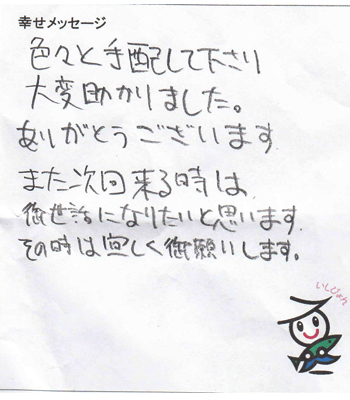 幸せメッセージ
色々と手配して下さり
大変助かりました。
ありがとうございます
また次回来る時は
御世話になりたいと思います
その時は宜しく御願いします。